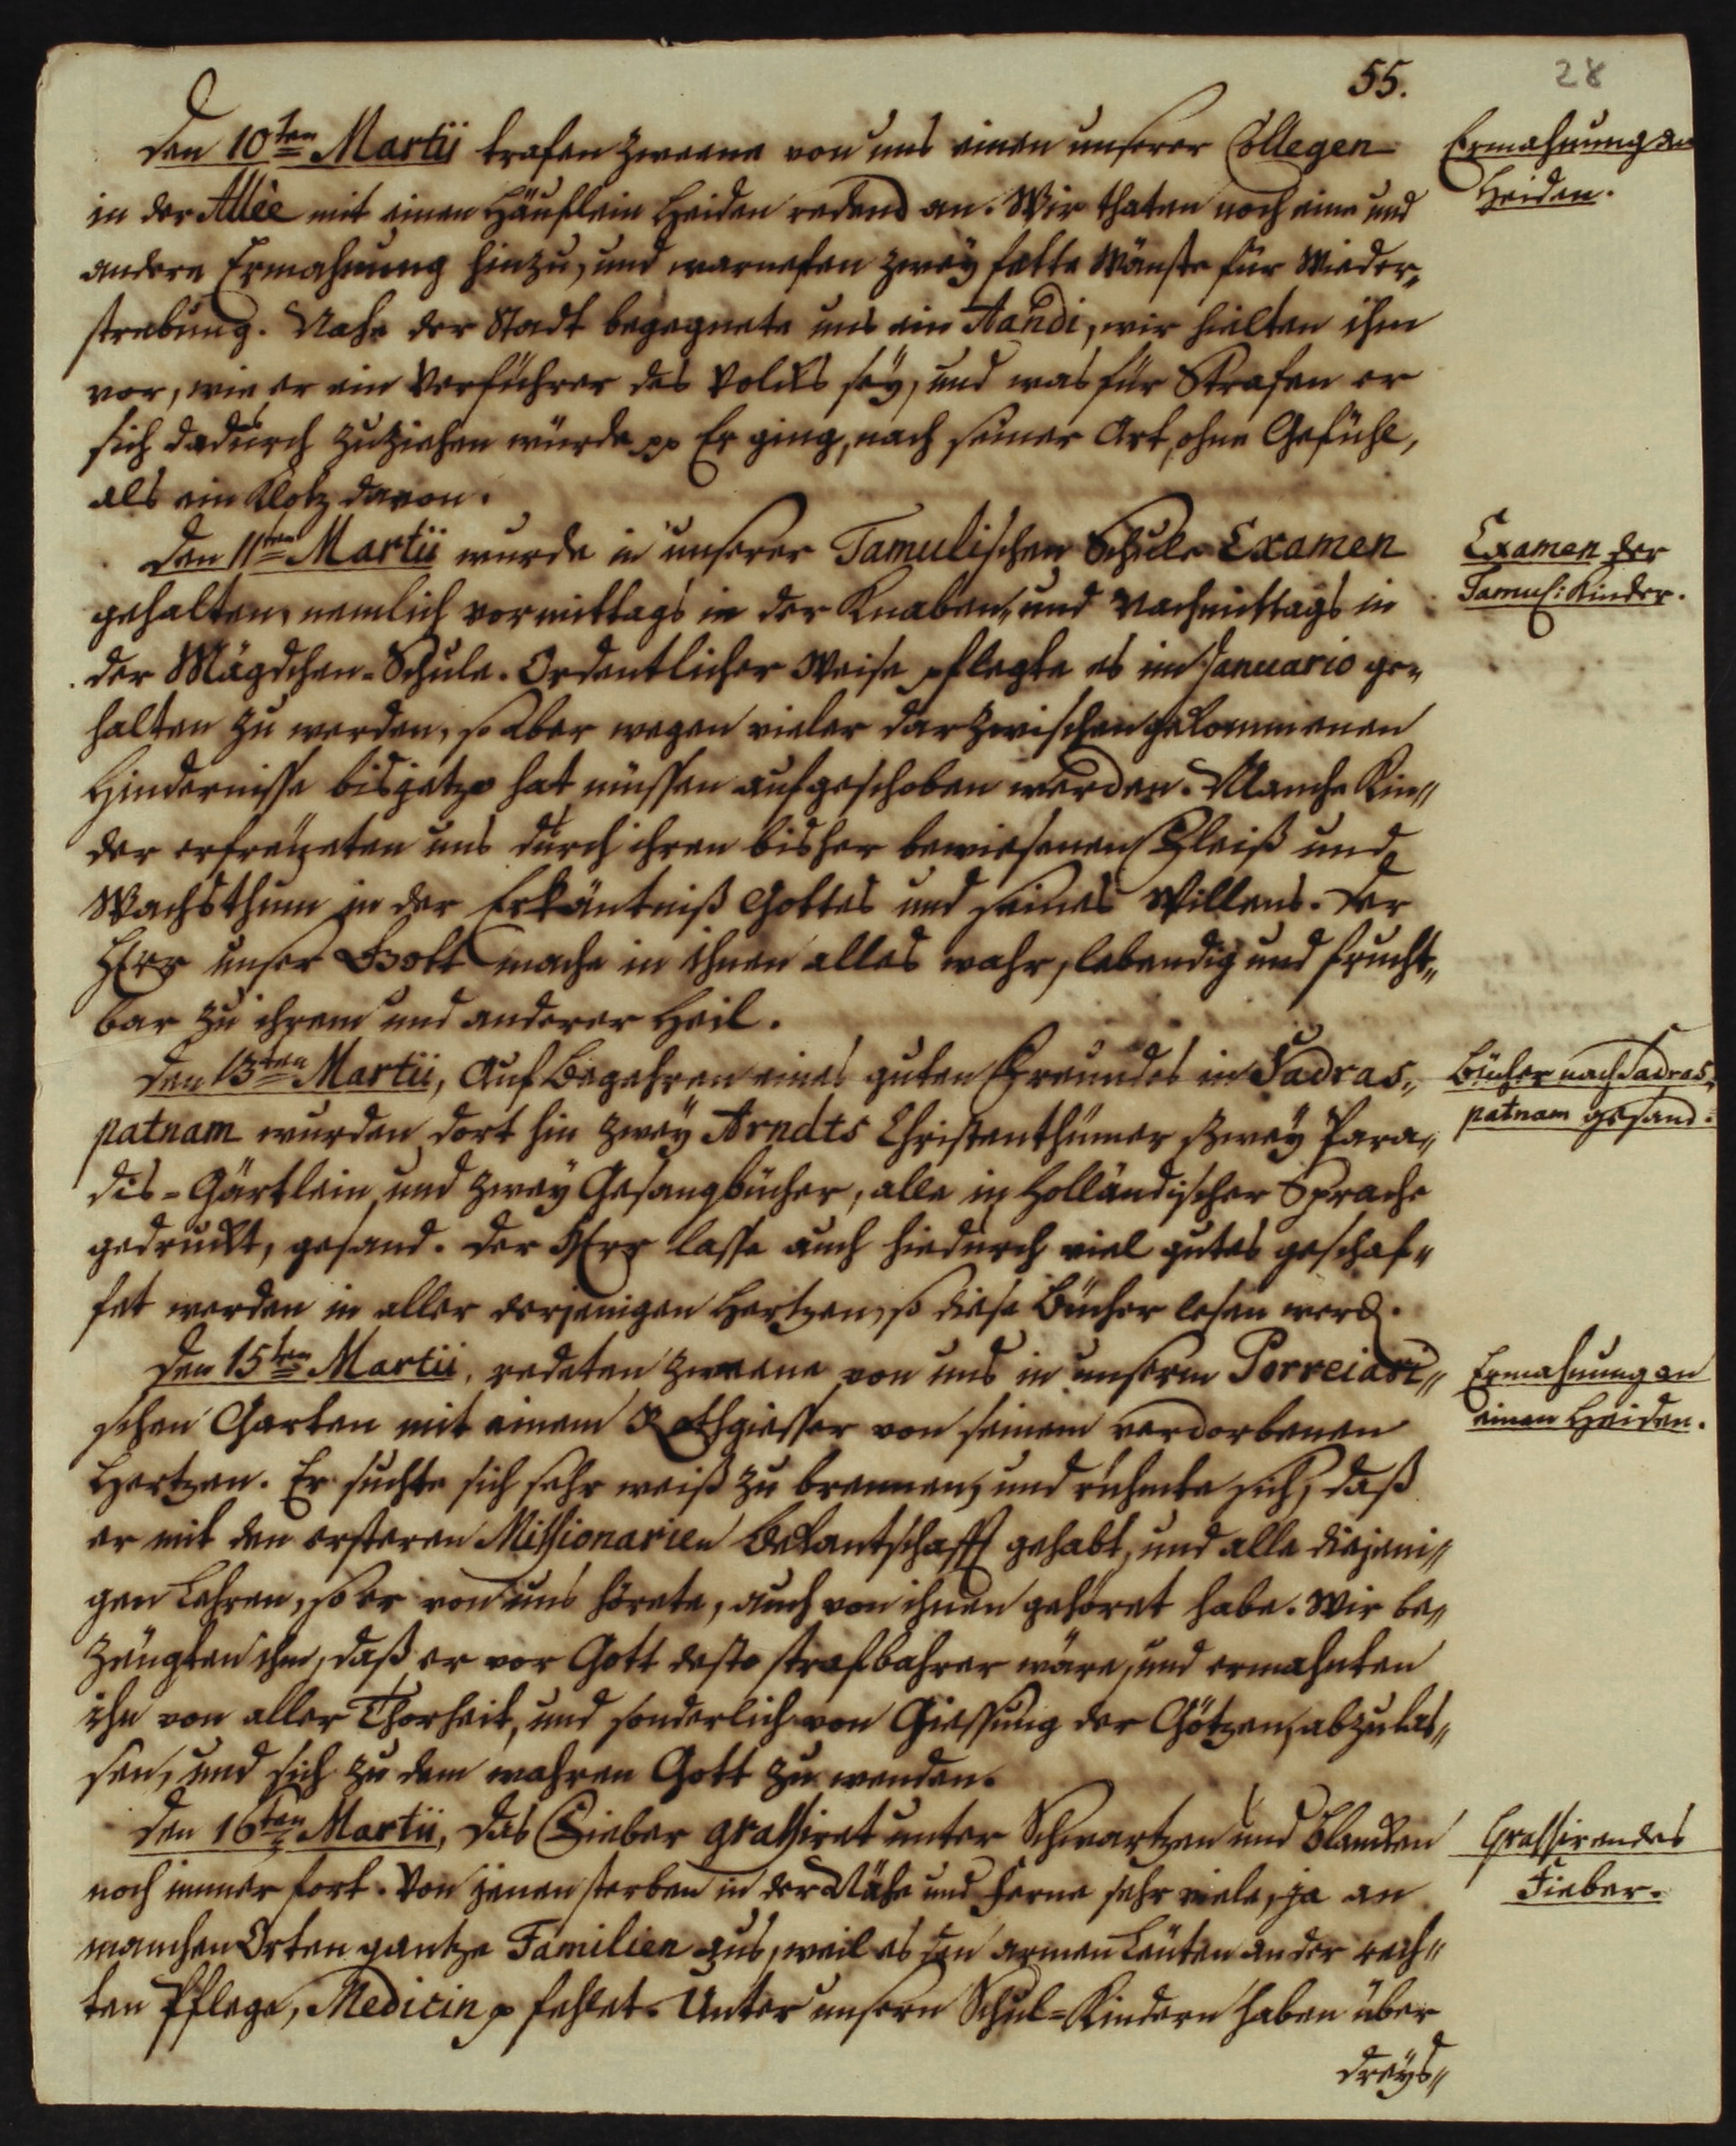 55.
28
Den 10ten Martii trafen zweene von uns einen unserer Collegen
in der Allèe mit einen Häuflein Heiden redend an. Wir thaten noch eine und
andere Ermahnung hinzu, und warneten zwey fette Wänste für Wieder„
strebung. Nahe der Stadt begegnete uns ein Aandi, wir hielten ihm
vor, wie er ein Verführer des Volcks sey, und was für Strafen er
sich dadurch zuziehen würde pp Er ging, nach seiner Art, ohne Gefühl,
als ein Klotz davon.
Ermahnung an
Heiden.
Den 11ten Martii wurde in unserer Tamulischen Schule Examen
gehalten, nemlich vormittags in der Knaben, und Nachmittags in
der Mägdchen-Schule. Ordentlicher Weise pflegte es im Januario ge„
halten zu werden, so aber wegen vieler darzwischen gekommenen
Hindernisse bis jetzo hat müssen aufgeschoben werden. Manche Kin„
der erfreueten uns durch ihren bisher bewiesenen Fleiß und
Wachsthum in der Erkäntniß Gottes und seines Willens. Der
HErr unser Gott mache in ihnen alles wahr, lebendig und frucht„
bar zu ihrem und anderer Heil.
Examen der
Tamul: Kinder.
Den 13ten Martii, Auf Begehren eines guten Freundes in Sadras„
patnam wurden dort hin zwey Arndts Christenthümer, zwey Para„
dis-Gärtlein und zwey Gesangbücher, alle in Holländischer Sprache
gedruckt, gesand. Der HErr lasse auch hiedurch viel gutes geschaf„
fet werden in aller derjenigen Hertzen, so diese Bücher lesen werd.
Bücher nach Sadras„
patnam gesand.
Den 15ten Martii, redeten zweene von uns in unserm Porreiari„
schen Garten mit einem Rothgiesser von seinem verdorbenen
Hertzen. Er suchte sich sehr weiß zu brennen, und rühmte sich, daß
er mit den ersteren Missionarien Bekantschafft gehabt, und alle diejeni„
gen Lehren, so er von uns hörete, auch von ihnen gehöret habe. Wir be„
zeugten ihm, daß er vor Gott desto strafbahrer wäre, und ermahnten
ihn von aller Thorheit, und sonderlich von Giessung der Götzen, abzulas„
sen, und sich zu dem wahren Gott zu wenden.
Ermahnung an
einen Heiden.
Den 16ten Martii, Das Fieber grassiret unter Schwartzen und Blancken
noch immer fort. Von jenen sterben in der Nähe und Ferne sehr viele, ja an
manchen Orten gantze Familien aus, weil es den armen Leuten an der rech„
ten Pflege, Medicin p fehlet. Unter unsern Schul-Kindern haben über
dreys„
Grassirendes
Fieber.